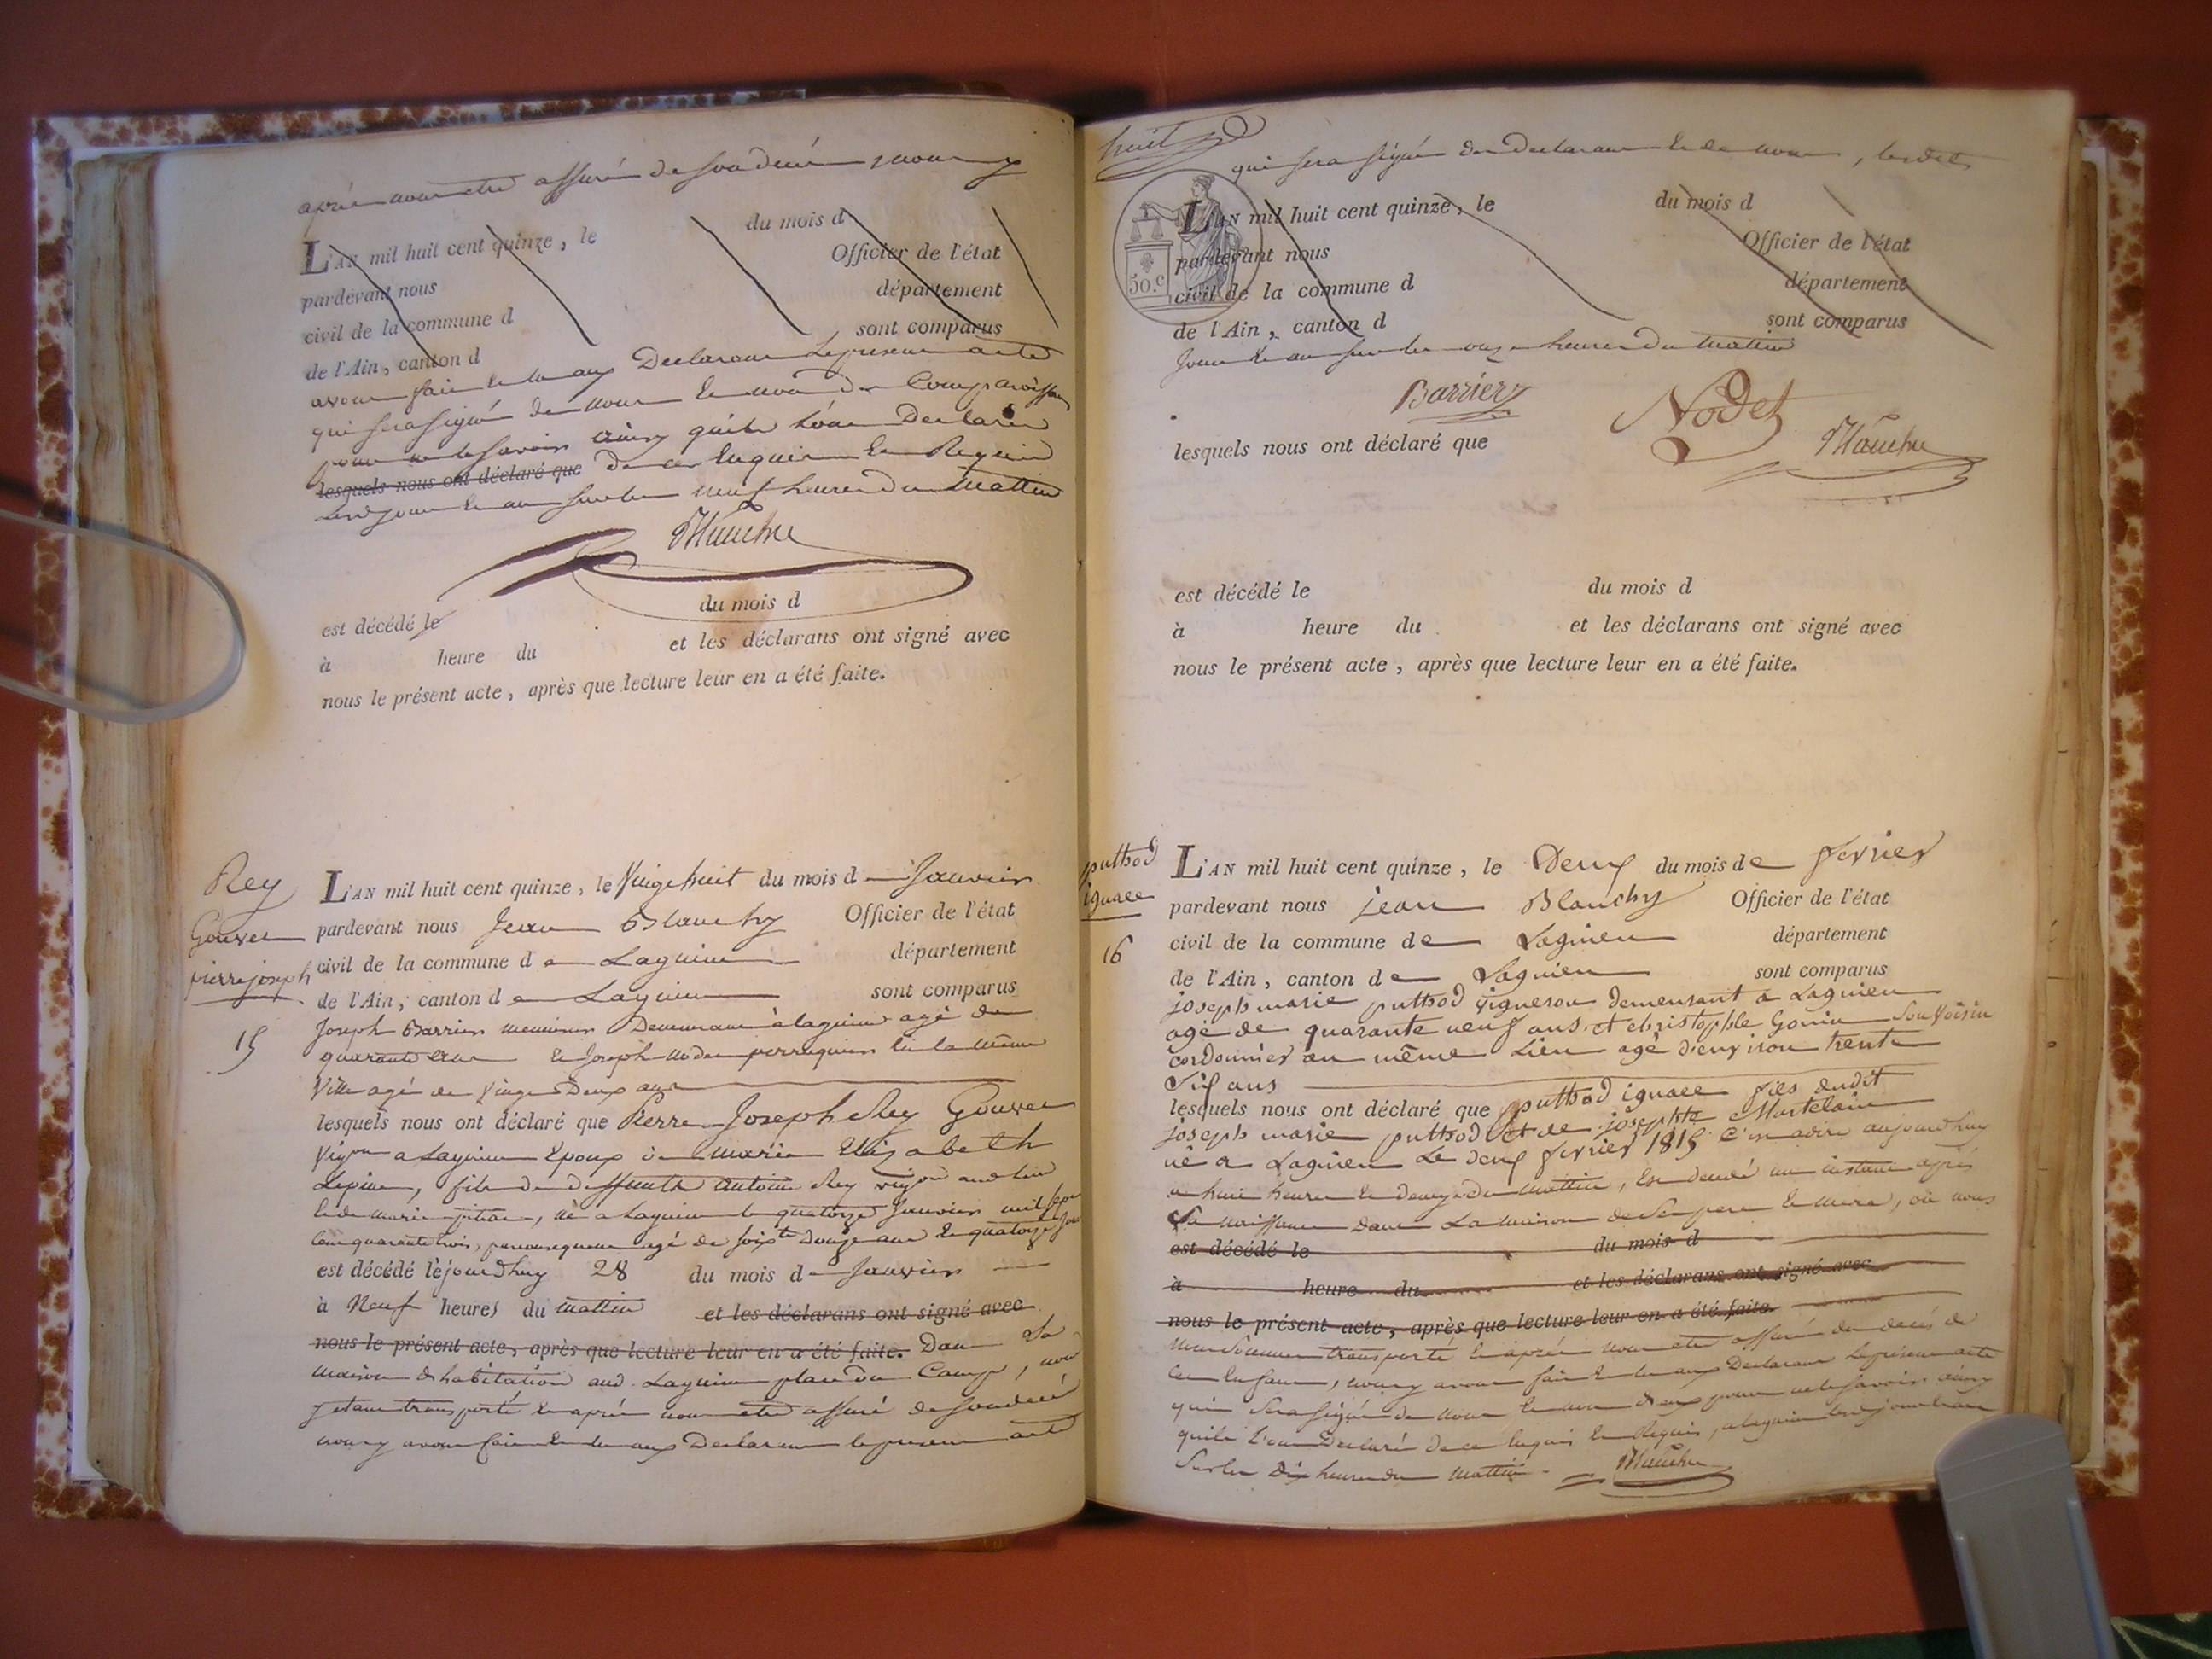 après nous être assuré de son décès nous y
L'AN mil huit cent quinze, le du mois d
pardevant nous Officier de l'état
civil de la commune d département
de l'Ain, canton d sont comparus
avons fait et lu aux Declarans le present acte
qui sera signé de nous et non des Comparoissans
pour ne le savoir ainsy qu'ils l'ont Declaré
lesquels nous ont déclaré que de ce Enquis et Requis
lesd jour et an sur les neuf heures du Mattin
Blanchy
est décédé le du mois d
à heure du et les déclarans ont signé avec
nous le présent acte, après que lecture leur en a été faite.
Rey
Gouvet
pierre joseph
15
L'AN mil huit cent quinze, le Vingt huit du mois de Janvier
pardevant nous Jean Blanchy Officier de l'état
civil de la commune de Lagnieu département
de l'Ain, canton de Lagnieu sont comparus
Joseph Barrier menuisier Demeurant à lagnieu agé de
quarante et Joseph Nodet perruquier en la même
Ville agé de Vingt Deux ans
lesquels nous ont déclaré que Pierre Joseph Rey Gouvet
Vigon a Lagnieu Epoux de Marie Elizabeth
Lepine, fils de deffunts antoine Rey vigon aud lieu
et de marie, né a Lagnieu le quatorze Janvier mil sept
cent quarante trois, par consequent agé de soixte Douze ans et quatorze jours
est décédé lejourdhuy 28 du mois de Janvier
à Neuf heures du mattin et les déclarans ont signé avec
nous le présent acte, après que lecture leur en a été faite. Dans Sa
maison d'habitation aud. Lagnieu place du Camp, nous
y etant transporté et après nous être assuré de son decès
nous y avons fait et lu aux Declarans le present acte
huit
qui sera signé des Declarans et de nous, lesdits
50.c
L'AN mil huit cent quinze, le du mois d
pardevant nous Officier de l'état
civil de la commune d département
de l'Ain, canton d sont comparus
Jour et an sur les onze heures du Mattin
Barrier Nodet
Blanchy
lesquels nous ont déclaré que
est décédé le du mois d
à heure du et les déclarans ont signé avec
nous le présent acte, après que lecture leur en a été faite.
puthod
ignace
16
L'AN mil huit cent quinze, le Deux du mois de fevrier
pardevant nous jean Blanchy Officier de l'état
civil de la commune de Lagnieu département
de l'Ain, canton de Lagnieu sont comparus
joseph marie puthod vigneron demeurant a Lagnieu
agé de quarante neuf ans et christophle Gonin son Voisin
cordonnier au même Lieu agé d'environ trente
six ans
lesquels nous ont déclaré que puthod ignace fils dudit
joseph marie puthod et de josephte Martelain
né a Lagnieu Le deux fevrier 1815 C'est adire aujourdhuy
a huit heures et demye du mattin, Est decedé un instant après
Sa naissance Dans La maison de Ses pere et mere, où nous
est décédé le du mois d
à heure du et les déclarans ont signé avec
nous le présent acte, après que lecture leur en a été faite.
nous sommes transporté et après nous être assuré du decès de
cet Enfant, nous y avons fait et lu aux Declarans le présent acte
qui Sera signé de nous et non d'eux pour ne le savoir ainsy
qu'ils l'ont Declaré de ce Enquis et Requis, a lagnieu lesd jour et an
Sur les Dix heures du Mattin
Blanchy